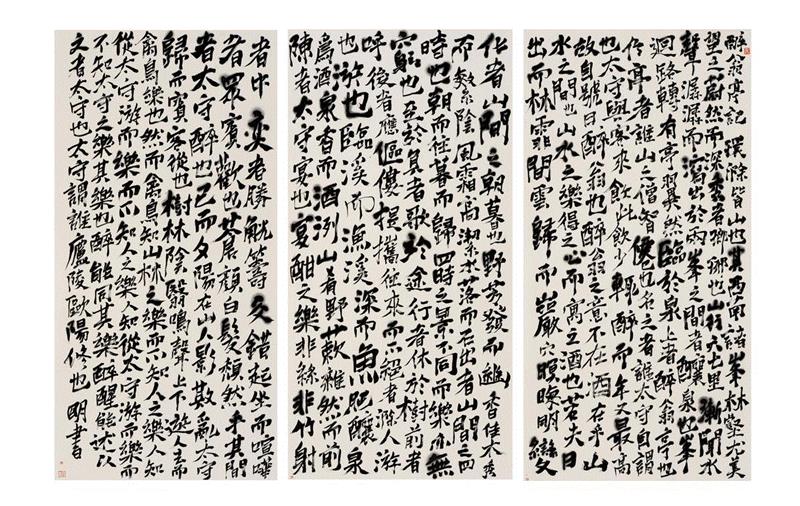 醉翁亭記 環滁皆山也其西南諸峯林壑尤美
望之蔚然而深秀者瑯琊也山行六七里漸聞水
聲潺潺而瀉出於兩峯之間者釀泉也峯
迴路轉有亭翼然臨於泉上者醉翁亭也
作亭者誰山之僧智僊也名之者誰太守自謂
也太守與客來飲此飲少輒醉而年又最高
故自號曰醉翁也醉翁之意不在酒在乎山
水之間也山水之樂得之心而寓之酒也若夫日
出而林霏開雲歸而巖穴暝晦明變
化者山間之朝暮也野芳發而幽香佳木秀
而繁陰風霜高潔水落而石出者山間之四
時也朝而往暮而歸四時之景不同而樂亦無
窮也至於負者歌於途行者休於樹前者
呼後者應傴僂提攜往來而不絕者滁人游
也游也臨溪而漁溪深而魚肥釀泉
為酒泉香而酒洌山肴野蔌雜然而前
陳者太守宴也宴酣之樂非絲非竹射
者中奕者勝觥籌交錯起坐而喧嘩
者眾賓歡也蒼顏白髮頹然乎其間
者太守醉也已而夕陽在山人影散亂太守
歸而賓客從也樹林陰翳鳴聲上下遊人去而
禽鳥樂也然而禽鳥知山林之樂而不知人之樂人知
從太守游而樂而不知人之樂人知從太守游而樂而
不知太守之樂其樂也醉能同其樂醉醒能述以
文者太守也太守謂誰廬陵歐陽修也 明書